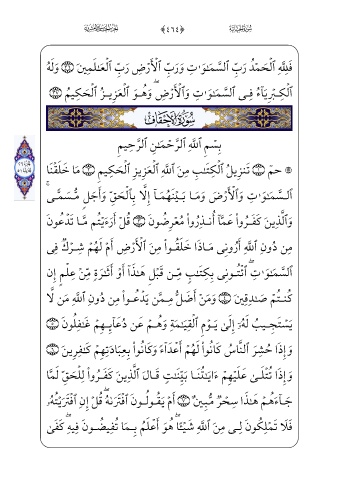 سُورَةُ الجَاثِيَةِ ﴿٤٦٤﴾ الجزء الخامس والعشرون
فَلِلَّهِ ٱلْحَمْدُ رَبِّ ٱلسَّمَـٰوَٰتِ وَرَبِّ ٱلْأَرْضِ رَبِّ ٱلْعَـٰلَمِينَ ۝ وَلَهُ
ٱلْكِبْرِيَآءُ فِى ٱلسَّمَـٰوَٰتِ وَٱلْأَرْضِ ۖ وَهُوَ ٱلْعَزِيزُ ٱلْحَكِيمُ ۝
سُورَةُ الأَحْقَافِ
بِسْمِ ٱللَّهِ ٱلرَّحْمَـٰنِ ٱلرَّحِيمِ
۞ حمٓ ۝ تَنزِيلُ ٱلْكِتَـٰبِ مِنَ ٱللَّهِ ٱلْعَزِيزِ ٱلْحَكِيمِ ۝ مَا خَلَقْنَا
ٱلسَّمَـٰوَٰتِ وَٱلْأَرْضَ وَمَا بَيْنَهُمَآ إِلَّا بِٱلْحَقِّ وَأَجَلٍ مُّسَمًّى ۚ
وَٱلَّذِينَ كَفَرُوا۟ عَمَّآ أُنذِرُوا۟ مُعْرِضُونَ ۝ قُلْ أَرَءَيْتُم مَّا تَدْعُونَ
مِن دُونِ ٱللَّهِ أَرُونِى مَاذَا خَلَقُوا۟ مِنَ ٱلْأَرْضِ أَمْ لَهُمْ شِرْكٌ فِى
ٱلسَّمَـٰوَٰتِ ۖ ٱئْتُونِى بِكِتَـٰبٍ مِّن قَبْلِ هَـٰذَآ أَوْ أَثَـٰرَةٍ مِّنْ عِلْمٍ إِن
كُنتُمْ صَـٰدِقِينَ ۝ وَمَنْ أَضَلُّ مِمَّن يَدْعُوا۟ مِن دُونِ ٱللَّهِ مَن لَّا
يَسْتَجِيبُ لَهُۥٓ إِلَىٰ يَوْمِ ٱلْقِيَـٰمَةِ وَهُمْ عَن دُعَآئِهِمْ غَـٰفِلُونَ ۝
وَإِذَا حُشِرَ ٱلنَّاسُ كَانُوا۟ لَهُمْ أَعْدَآءً وَكَانُوا۟ بِعِبَادَتِهِمْ كَـٰفِرِينَ ۝
وَإِذَا تُتْلَىٰ عَلَيْهِمْ ءَايَـٰتُنَا بَيِّنَـٰتٍ قَالَ ٱلَّذِينَ كَفَرُوا۟ لِلْحَقِّ لَمَّا
جَآءَهُمْ هَـٰذَا سِحْرٌ مُّبِينٌ ۝ أَمْ يَقُولُونَ ٱفْتَرَىٰهُ ۖ قُلْ إِنِ ٱفْتَرَيْتُهُۥ
فَلَا تَمْلِكُونَ لِى مِنَ ٱللَّهِ شَيْـًٔا ۖ هُوَ أَعْلَمُ بِمَا تُفِيضُونَ فِيهِ ۖ كَفَىٰ